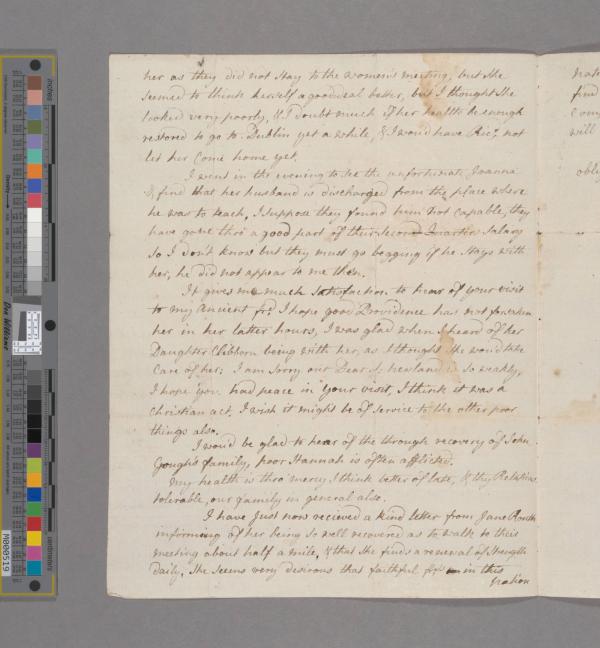 her as they did not stay to the women's meeting, but she
seemed to think herself a good deal better, but I thought she
looked very poorly, & I doubt much if her health be enough
restored to go to Dublin yet a while, & I wou'd have Ric.d not
let her come home yet.
I went in the evening to see the unfortunate Joanna
& find that her husband is discharged from the place where
he was to teach, I suppose they found him not capable, they
have gone thro' a good part of their second Quarter Salary
so I don't know but they must go begging if he stays with
her, he did not appear to me then.
It gives me much satisfaction to hear of your visit
to my Ancient frd. I hope good Providence has not forsaken
her in her latter hours, I was glad when I heard of her
Daughter Clibborn being with her, as I thought she wou'd take
care of her; I am sorry our Dear S. Newland is so weakly,
I hope you had peace in your visit, I think it was a
Christian act, I wish it might be of service to the other poor
things also.
I wou'd be glad to hear of the through recovery of John
Gough's family, poor Hannah is often afflicted.
My health is thro' mercy I think better of late, & thy Relations
tolerable, our family in general also.
I have just now recieved a kind letter from Jane Routh
informing of her being so well recovered as to walk to their
meeting about half a mile, & that she finds a renewal of strength
daily, she seems very desirous that faithful in this
Nation
find
will
inches
Density
Don Williams
M000519